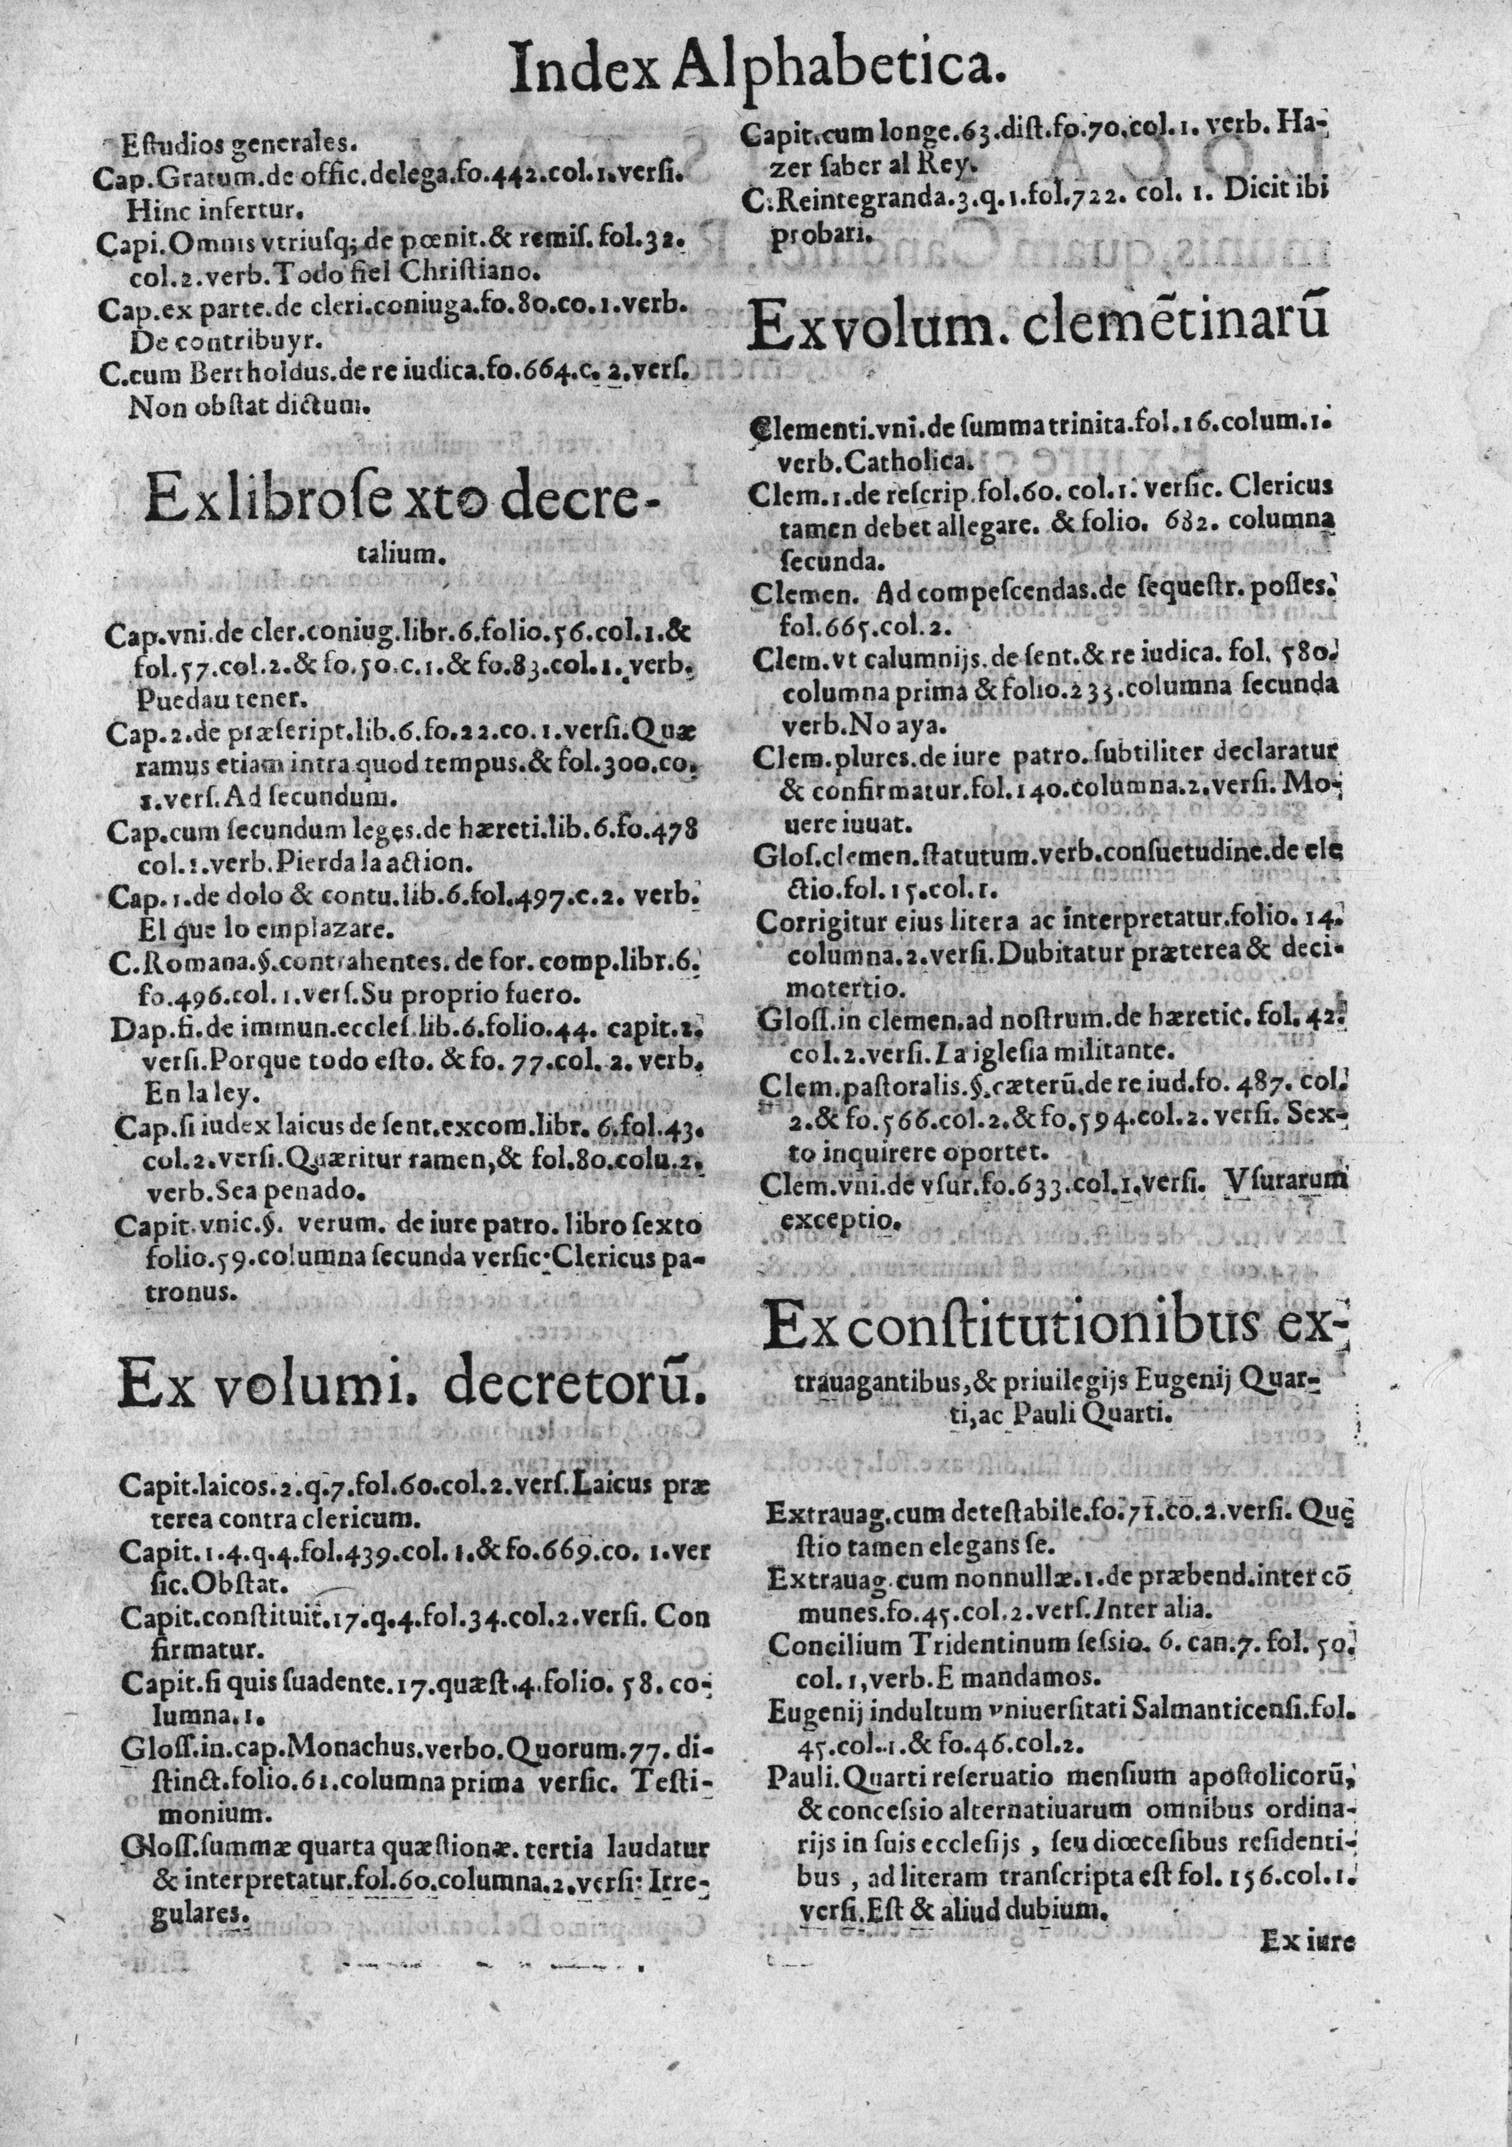 Index Alphabetica.
Eſtudios generales.
Cap.Gratum.de offic.delega.fo.442.col.1.verſi.
Hinc infertur.
Capi.Omnis vtriuſq; de pœnit.& remiſ. fol.32.
col.2.verb.Todo fiel Chriſtiano.
Cap.ex parte.de cleri.coniuga.fo.80.co.1.verb.
De contribuyr.
C.cum Bertholdus.de re iudica.fo.664.c. 2.verſ.
Non obſtat dictum.
Ex libro ſe xto decre-
talium.
Cap.vni.de cler.coniug.libr.6.folio.56.col.1.&
fol.57.col.2.& fo.50.c.1.& fo.83.col.1. verb.
Puedau tener.
Cap.2.de præſcript.lib.6.fo.22.co.1.verſi.Quæ
ramus etiam intra quod tempus.& fol.300.co.
1.verſ.Ad ſecundum.
Cap.cum ſecundum leges.de hæreti.lib.6.fo.478
col.1.verb.Pierda la action.
Cap.1.de dolo & contu.lib.6.fol.497.c.2. verb.
El que lo emplazare.
C.Romana.§.contrahentes.de for. comp.libr.6.
fo.496.col.1.verſ.Su proprio fuero.
Dap.fi.de immun.eccleſ.lib.6.folio.44. capit.2.
verſi.Porque todo eſto. & fo. 77.col. 2. verb.
En la ley.
Cap.ſi iudex laicus de ſent.excom.libr. 6.fol.43.
col.2.verſi.Quæritur ramen,& fol.80.colu.2.
verb.Sea penado.
Capit.vnic.§. verum. de iure patro. libro ſexto
folio.59.columna ſecunda verſic.Clericus pa-
tronus.
Ex volumi. decretorũ.
Capit.laicos.2.q.7.fol.60.col.2.verſ.Laicus præ
terea contra clericum.
Capit.1.4.q.4.fol.439.col.1.& fo.669.co. 1.ver
ſic.Obſtat.
Capit.conſtituit.17.q.4.fol.34.col.2.verſi. Con
firmatur.
Capit.ſi quis ſuadente.17.quæſt.4.folio. 58. co-
lumna.1.
Gloſſ.in.cap.Monachus.verbo.Quorum.77. di-
ſtinct.folio.61.columna prima verſic. Teſti-
monium.
Gloſſ.ſummæ quarta quæſtionæ. tertia laudatur
& interpretatur.fol.60.columna.2.verſi: Irre-
gulares.
Capit.cum longe.63.diſt.fo.70.col.1. verb. Ha-
zer ſaber al Rey.
C.Reintegranda.3.q.1.fol.722. col. 1. Dicit ibi
probari.
Ex volum. clemẽtinarũ
Clementi.vni.de ſumma trinita.fol.16.colum.1.
verb.Catholica.
Clem.1.de reſcrip.fol.60. col.1. verſic. Clericus
tamen debet allegare. & folio. 682. columna
ſecunda.
Clemen. Ad compeſcendas.de ſequeſtr. poſſes.
fol.665.col.2.
Clem.vt calumnijs.de ſent.& re iudica. fol. 580.
columna prima & folio.233.columna ſecunda
verb.No aya.
Clem.plures.de iure patro.ſubtiliter declaratur
& confirmatur.fol.140.columna.2.verſi. Mo-
uere iuuat.
Gloſ.clemen.ſtatutum.verb.conſuetudine.de ele
ctio.fol.15.col.1.
Corrigitur eius litera ac interpretatur.folio. 14.
columna.2.verſi.Dubitatur præterea & deci-
motertio.
Gloſſ.in clemen.ad noſtrum.de hæretic. fol. 42.
col.2.verſi.La igleſia militante.
Clem.paſtoralis.§.cæterũ.de re iud.fo. 487. col.
2.& fo.566.col.2.& fo.594.col.2. verſi. Sex-
to inquirere oportet.
Clem.vni.de vſur.fo.633.col.1.verſi. Vſurarum
exceptio.
Ex conſtitutionibus ex-
trauagantibus,& priuilegijs Eugenij Quar-
ti,ac Pauli Quarti.
Extrauag.cum deteſtabile.fo.71.co.2.verſi. Quę
ſtio tamen elegans ſe.
Extrauag.cum nonnullæ.1.de præbend.inter cõ
munes.fo.45.col.2.verſ.Inter alia.
Concilium Tridentinum ſeſsio. 6. can.7. fol. 50.
col.1,verb.E mandamos.
Eugenij indultum vniuerſitati Salmanticenſi.fol.
45.col.1.& fo.46.col.2.
Pauli.Quarti reſeruatio menſium apoſtolicorũ,
& conceſsio alternatiuarum omnibus ordina-
rijs in ſuis eccleſijs , ſeu diœceſibus reſidenti-
bus , ad literam tranſcripta eſt fol. 156.col.1.
verſi.Eſt & aliud dubium.
Ex iure